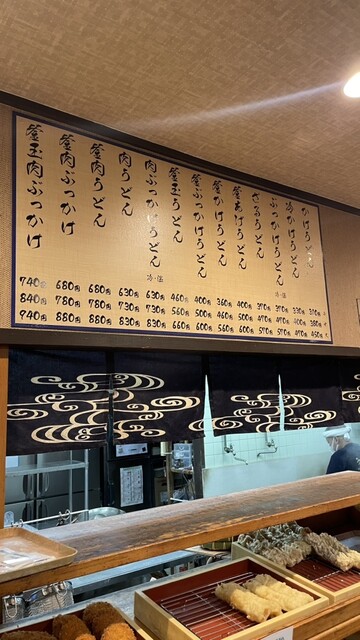 かけうどん 310円 380円 450円
冷かけうどん 330円 400円 470円
ぶっかけうどん 冷・温 370円 470円 570円
ざるうどん 370円 470円 570円
釜あげうどん 400円 500円 600円
釜かけうどん 360円 460円 560円
釜ぶっかけうどん 400円 500円 600円
釜玉うどん 460円 560円 660円
肉ぶっかけうどん 冷・温 630円 730円 830円
肉うどん 630円 730円 830円
釜肉うどん 680円 780円 880円
釜肉ぶっかけ 680円 780円 880円
釜玉肉ぶっかけ 740円 840円 940円